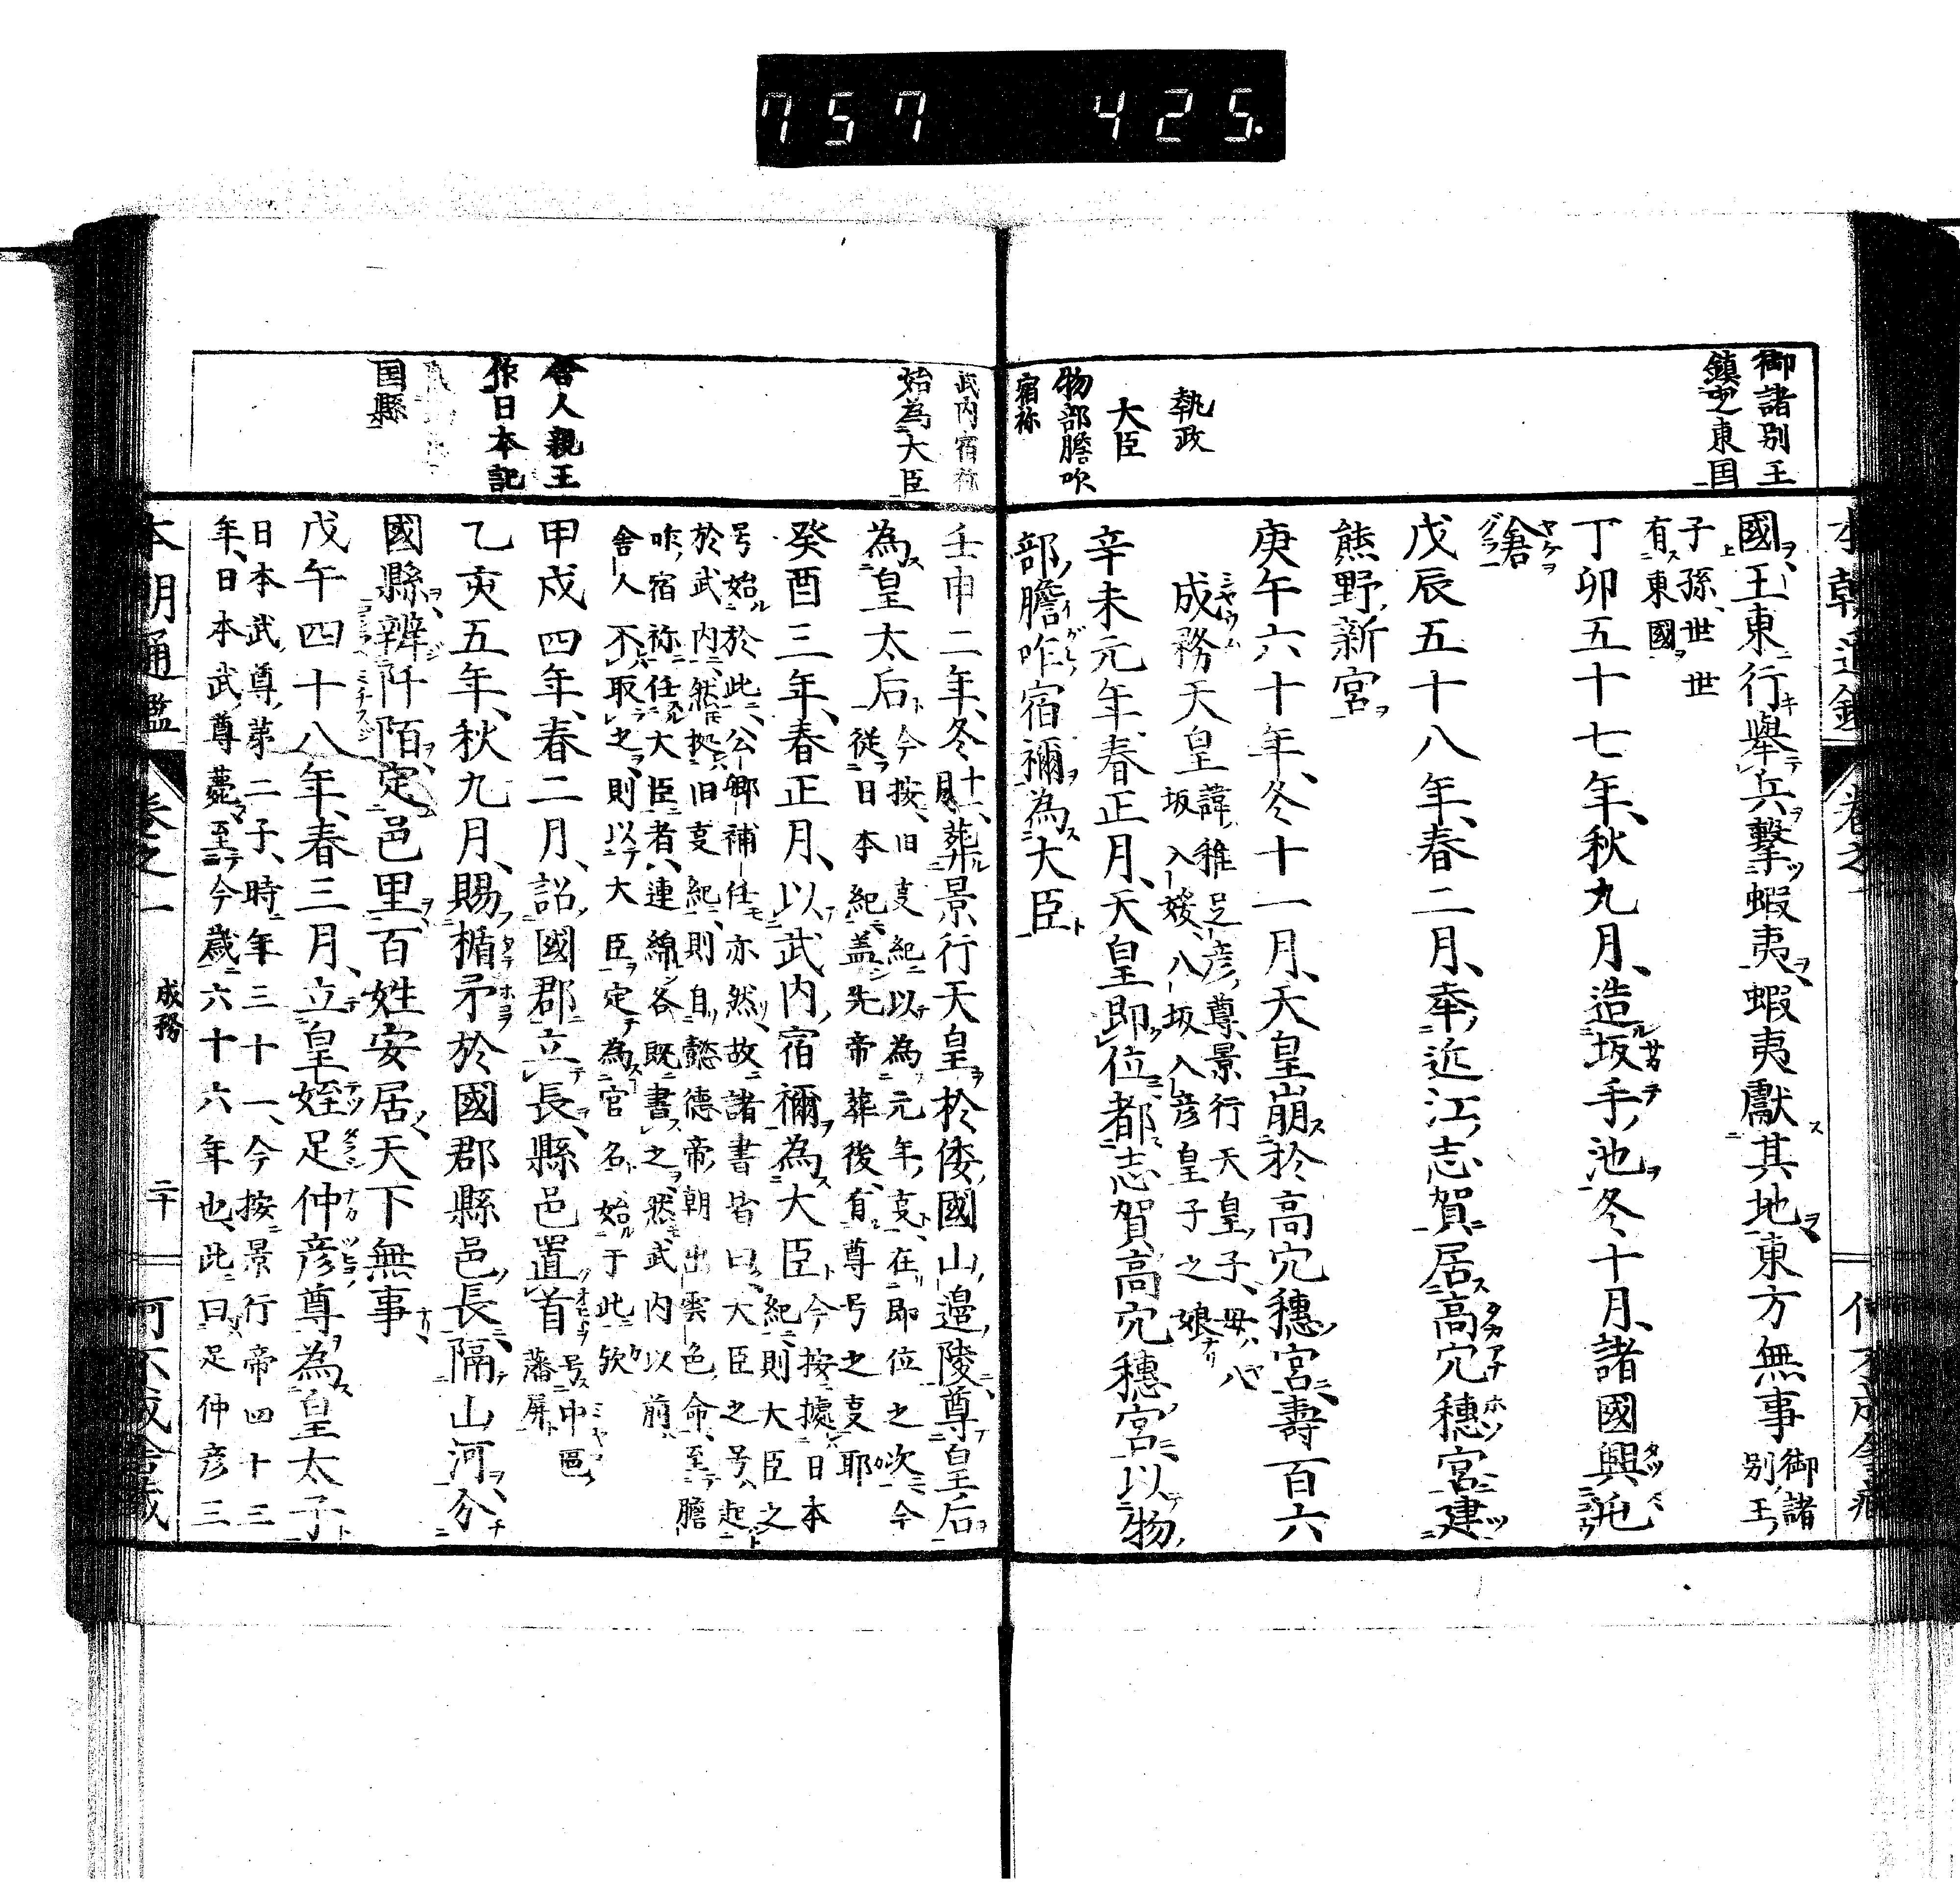 757 425.
御諸別王
鎮之東国
執政
大臣
物部膽吹
宿祢
國王東行舉兵擊蝦夷蝦夷獻其地東方無事御諸別王
子孫世世
有東國
丁卯五十七年秋九月造坂手池冬十月諸國興屯
倉
戊辰五十八年春二月幸近江志賀居高穴穗宮建
熊野新宮
庚午六十年冬十一月天皇崩於高穴穗宮壽百六
成務天皇諱稚足彦尊景行天皇子母八
坂入媛八坂入彦皇子之娘
辛未元年春正月天皇即位都志賀高穴穗宮以物
部膽咋宿禰為大臣
武内宿祢
始為大臣
舎人親王
作日本記
国縣
壬申二年冬十一月葬景行天皇於倭國山邉陵尊皇后
為皇太后今按旧㕝紀以為元年㕝在即位之次今
從日本紀盖先帝葬後有尊号之㕝耶
癸酉三年春正月以武内宿禰為大臣今按據日本
紀則大臣之
号始於此公卿補任亦然故諸書皆曰大臣之号起
於武内然按旧㕝紀則自懿德帝朝出雲色命至膽
咋宿祢任大臣者連綿各既書之然武内以前
舍人不取之則以大臣定為官名始于此欤
甲戌四年春二月詔國郡立長縣邑置首号中區
藩屏
乙亥五年秋九月賜楯矛於國郡縣邑長隔山河分
國縣辨阡陌定邑里百姓安居天下無事
戊午四十八年春三月立皇姪足仲彦尊為皇太子
日本武尊苐二子時年三十一今按景行帝四十三
年日本武尊薨至今歲六十六年也此曰足仲彦三
本朝通鑑 卷之一 成務 二十